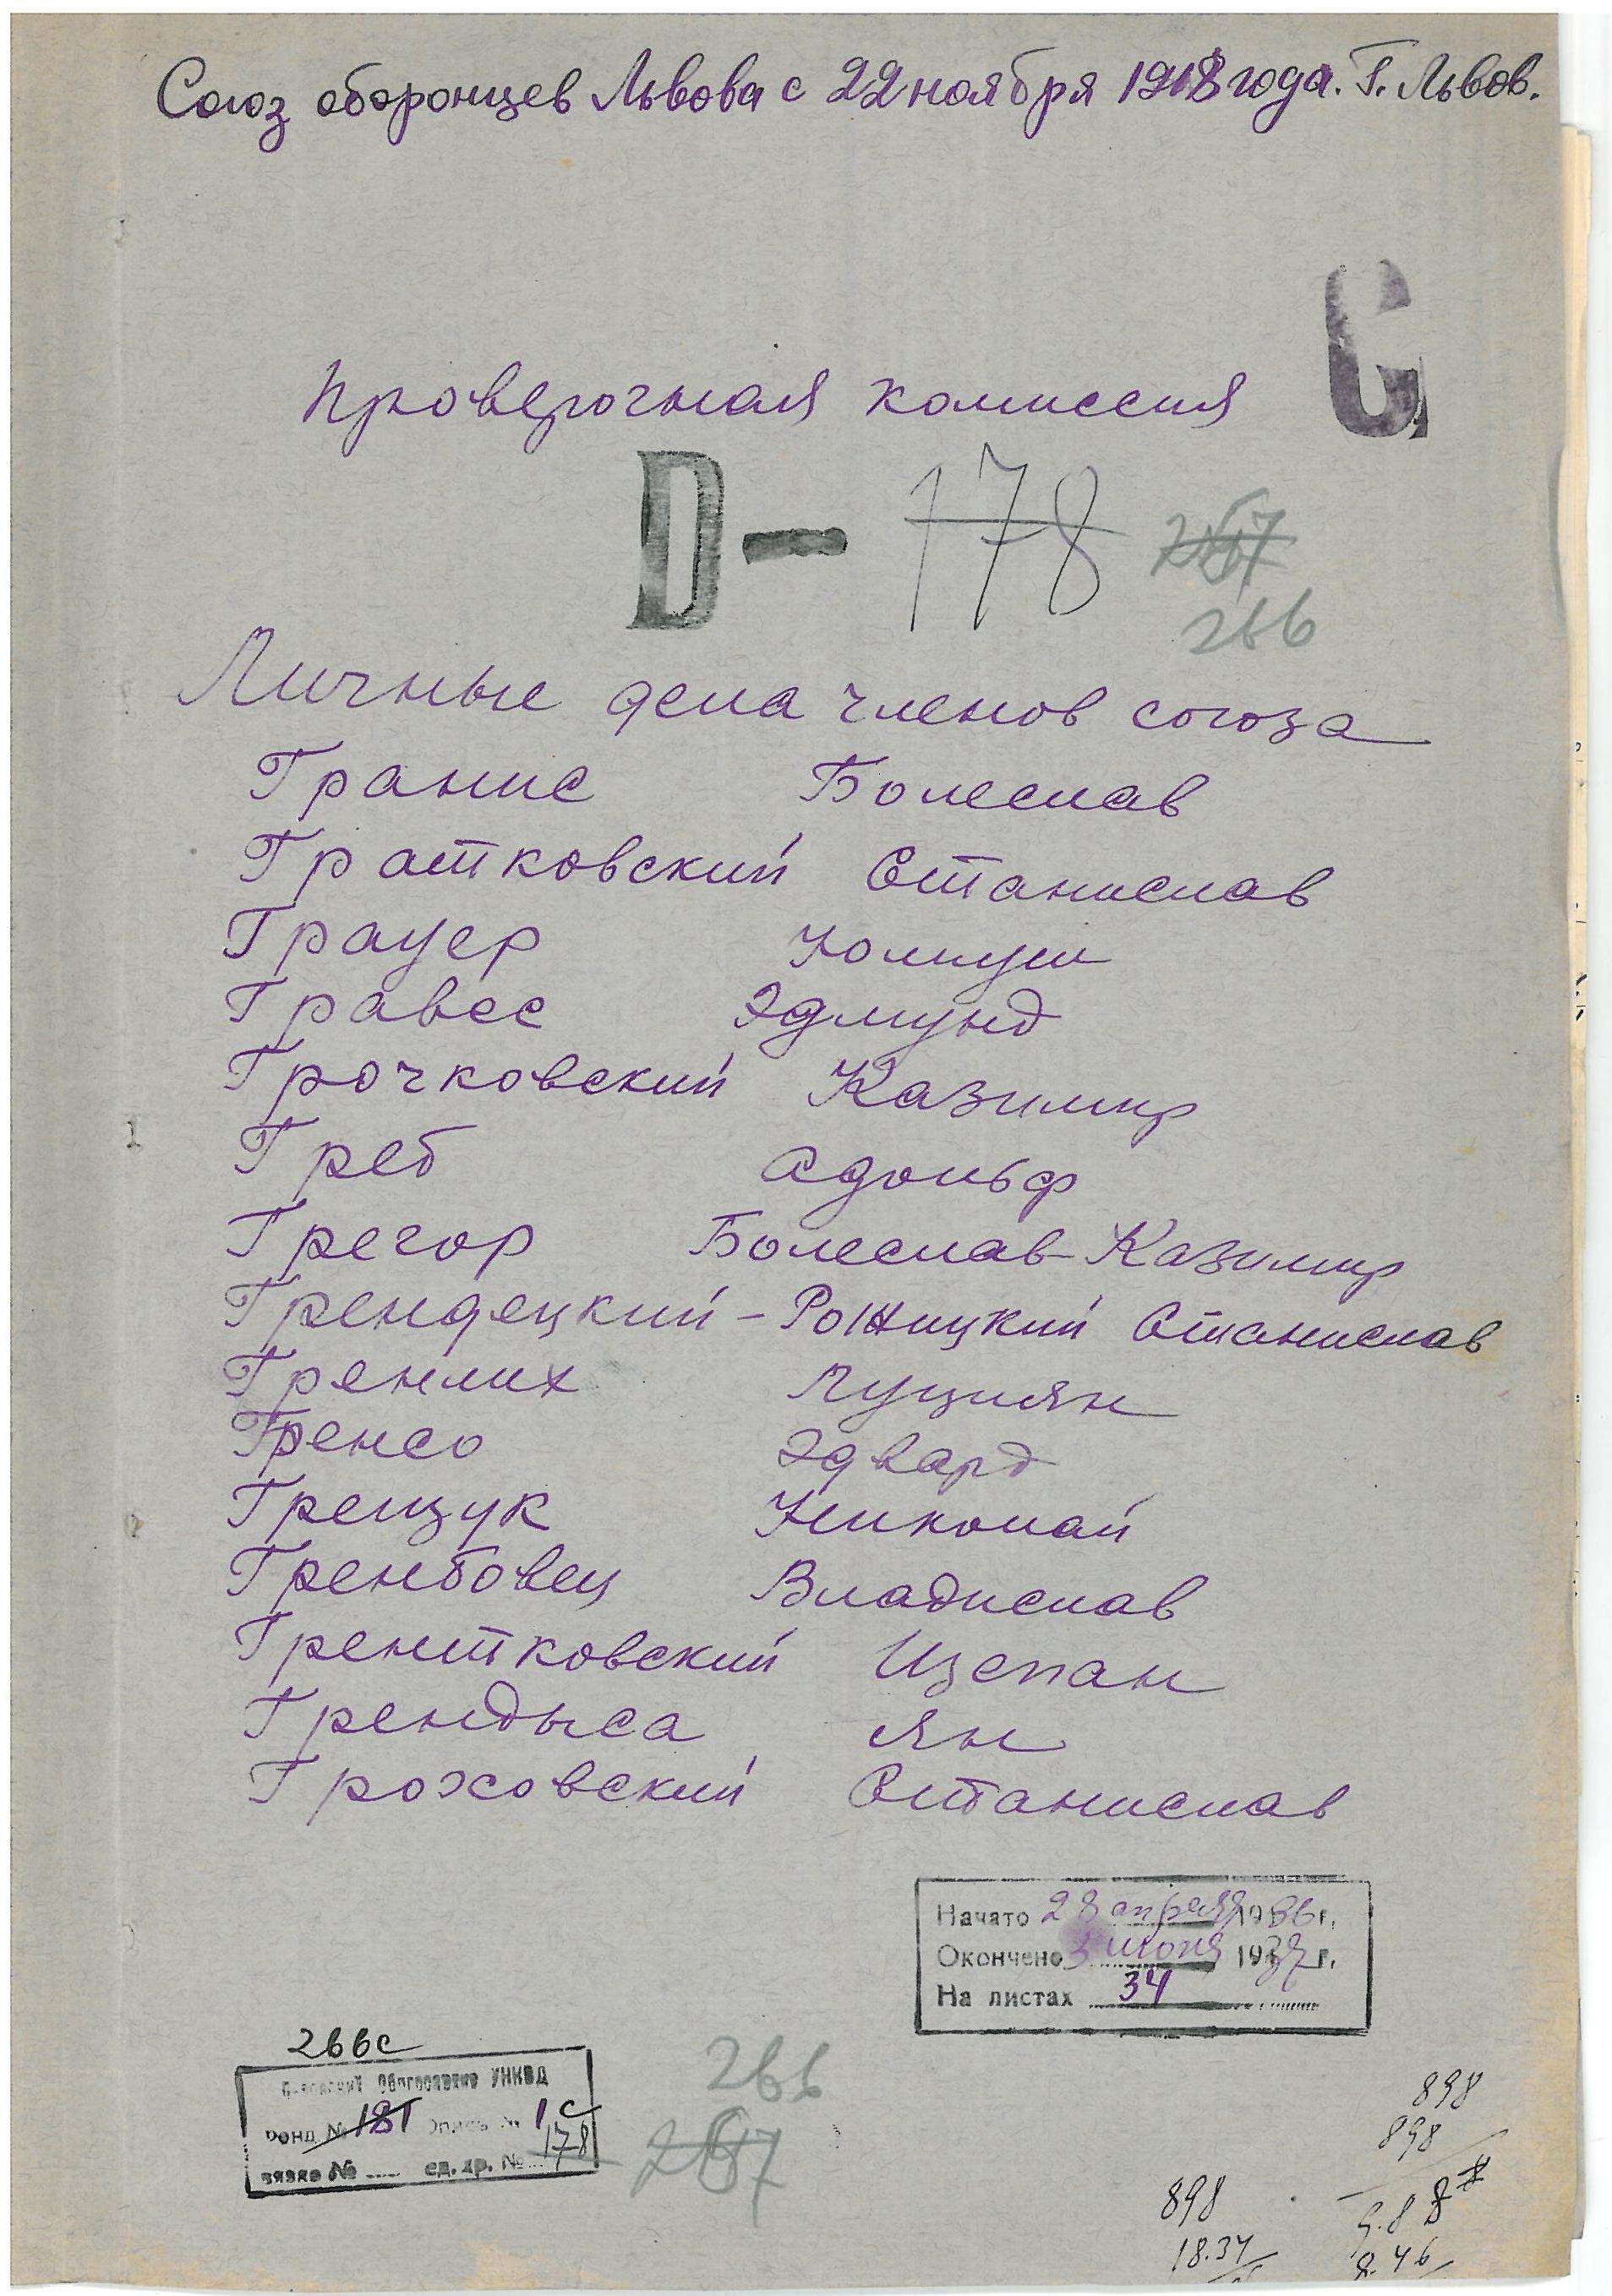 Союз оборонцев Львова с 22 ноября 1918 года. Г. Львов.
G
Проверочная комиссия
D - 178 267
266
Личные дела членов союза
Гранис Болеслав
Гратковский Станислав
Грауер Юлиуш
Гравес Эдмунд
Грочковский Казимир
Греб Адольф
Грегор Болеслав-Казимир
Грендецкий - Рожицкий Станислав
Гренлих Луциян
Гренсо Эдвард
Грещук Николай
Гренбовец Владислав
Грентковский Щепан
Грендыса Ян
Гроховский Станислав
Начато 28 апреля 1936 г.
Окончено 3 июня 1937 г.
На листах 34
266с
Облгосархив УНКВД
Фонд № 181 Опись № 1с
вязке № ед. хр. № 178
266
267
898
898
898
18.34